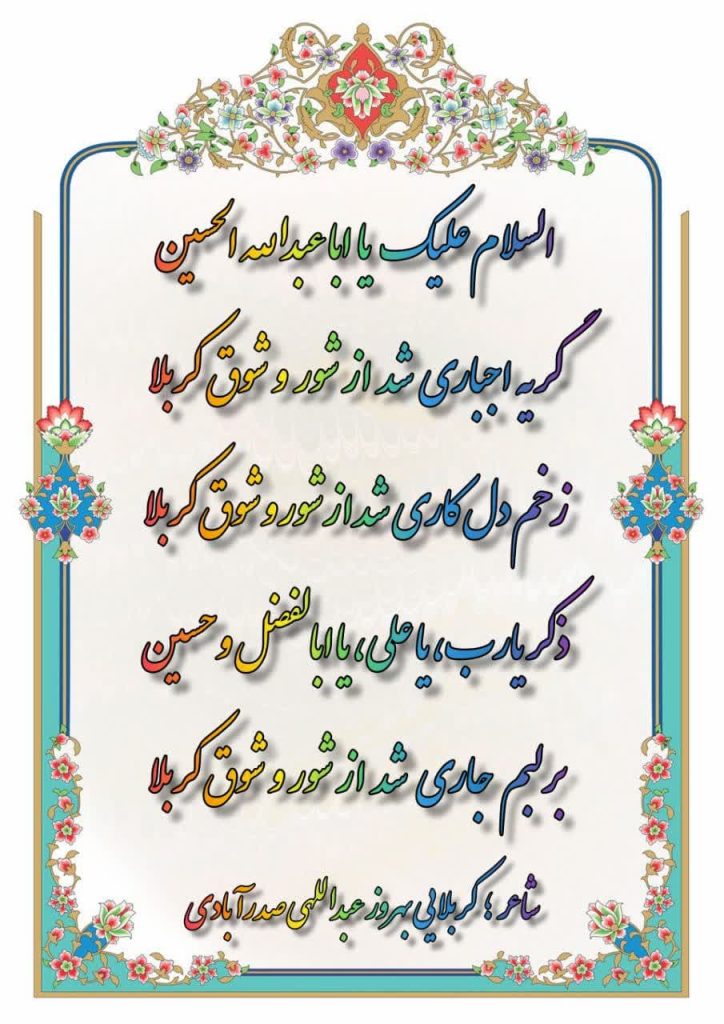 السلام علیک یا اباعبدالله الحسین
گریه اجباری شد از شور و شوق کربلا
زخم دل کاری شد از شور و شوق کربلا
ذکر یارب، یا علی، یا ابالفضل و حسین
بر لبم جاری شد از شور و شوق کربلا
شاعر ؛ کربلایی بهروز عبداللهی صدرآبادی